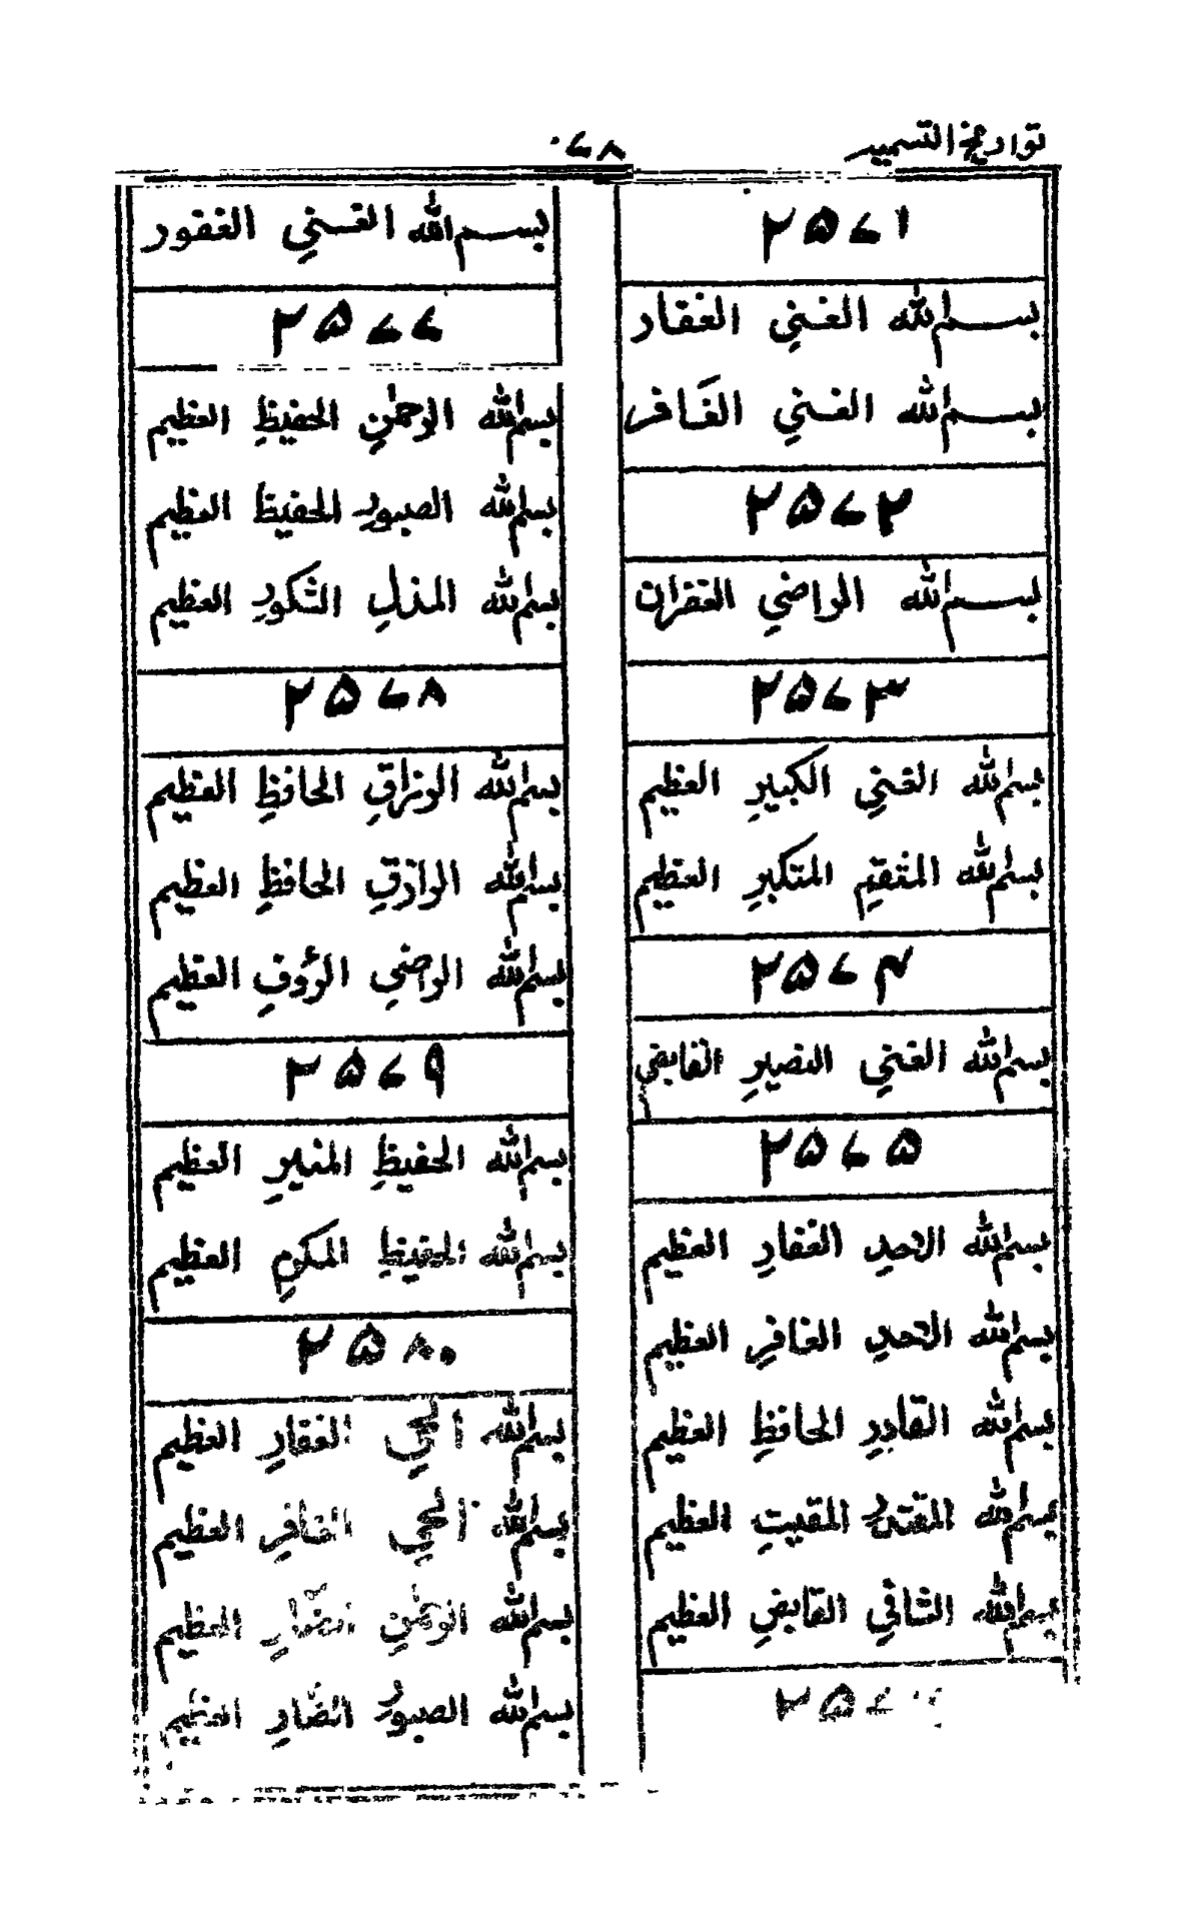 تواریخ التسمیہ
۰۷۸
۲۵۷۱
بسم الله الغني الغفار
بسم الله الغني الغافر
۲۵۷۲
بسم الله الراضي الغفران
۲۵۷۳
بسم الله الغني الكبير العظيم
بسم الله المنتقم المتكبر العظيم
۲۵۷۴
بسم الله الغني النصير القابض
۲۵۷۵
بسم الله الاحد الغفار العظيم
بسم الله الاحد الغافر العظيم
بسم الله القادر الحافظ العظيم
بسم الله المقتدر المقيت العظيم
بسم الله الشافي القابض العظيم
۲۵۷
بسم الله الغني الغفور
۲۵۷۷
بسم الله الرحمٰن الحفيظ العظيم
بسم الله الصبور الحفيظ العظيم
بسم الله المذل الشكور العظيم
۲۵۷۸
بسم الله الرزاق الحافظ العظيم
بسم الله الرازق الحافظ العظيم
بسم الله الراضي الرؤف العظيم
۲۵۷۹
بسم الله الحفيظ المنير العظيم
بسم الله الحفيظ المكرم العظيم
۲۵۸۰
بسم الله المحي الغفار العظيم
بسم الله المحي الغافر العظيم
بسم الله الرحمٰن الضار العظيم
بسم الله الصبور الضار العظيم